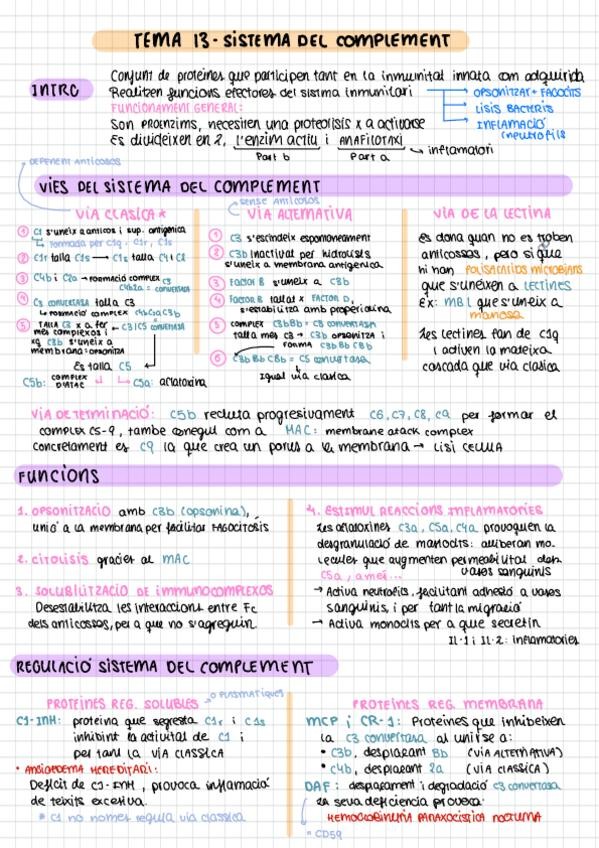 TEMA 13 - SISTEMA DEL COMPLEMENT
INTRO
Conjunt de proteines que participen tant en la inmunitat innata com adquirida
Realitzen funcions efectores del sistema inmunitari
→ OPSONITZAR + FAGOCITS
→ LISIS BACTERIS
→ INFLAMACIÓ (neutrofils
FUNCIONAMENT GENERAL:
Son PROENZIMS, necesiten una proteolisis x a activarse
Es divideixen en 2, l'enzim actiu i ANAFILOTAXI → inflamatori
Part b Part a
DEPENENT ANTICOSOS
VIES DEL SISTEMA DEL COMPLEMENT
VIA CLASICA *
1 C1 s'uneix a anticos i sup. antigenica
formada per C1q, C1r, C1s
2 C1r talla C1s → C1s talla C4 i C2
3 C4b i C2a → formació complex C3
C4b2a = CONVERTASA
4 C3 CONVERTASA talla C3
↳ Formació complex C4b2a3b
5 TALLA C3 x a fer més complexos i
C3 i C5 CONVERTASA
xq C3b s'uneix a
membrana: OPSONITZA
Es talla C5
C5b: COMPLEX D'ATAC
C5a:
SENSE ANTICOSOS
VIA ALTERNATIVA
1 C3 s'escindeix espontoneament
2 C3b Inactivat per hidrolisis
s'uneix a membrana antigenica
3 FACTOR B s'uneix a C3b
4 FACTOR B tallat x FACTOR D,
s'estabilitza amb properidina
5 COMPLEX C3bBb = C3 CONVERTASA
talla mes C3 → C3b OPSONITZA i
FORMA C3bBb C3b
6 C3bBb C3b = C5 convertasa
Igual via clasica
VIA DE LA LECTINA
Es dona quan no es troben
anticossos, pero si que
hi han POLISACARIDS MICROBIANS
que s'uneixen a LECTINES
EX: MBL que s'uneix a
manosa
Les lectines fan de C1q
i activen la mateixa
cascada que via clasica
VIA DE TERMINACIÓ: C5b recluta progresivament C6, C7, C8, C9 per formar el
COMPLEX C5-9, també conegut com a MAC: membrane atack complex
Concretament es C9 la que crea un porus a la membrana → LISI CELULA
FUNCIONS
1. OPSONITZACIO amb C3b (opsonina),
unió a la membrana per facilitar FAGOCITOSIS
2. CITOLISIS gracies al MAC
3. SOLUBILITZACIO DE IMMUNOCOMPLEXOS
Desestabilitza les interaccions entre Fc
dels anticossos, per a que no s'agreguin
4. ESTIMUL REACCIONS INFLAMATORIES
Les C3a, C5a, C4a provoquen la
desgranulació de mastocits: alliberan mo-
lecules que augmenten permeabilitat dels
vasos sanguinis
C5a, a més...
→ Activa neutrofils, facilitant adhesió a vasos
sanguinis, i per tant la migració
→ Activa monocits per a que secretin
IL-1 i IL-2: inflamatories
REGULACIÓ SISTEMA DEL COMPLEMENT
PROTEINES REG. SOLUBLES → PLASMATIQUES
C1-INH: proteina que segresta C1r i C1s
inhibint la activitat de C1 i
per tant la VIA CLASSICA
* ANGIOEDEMA HEREDITARI:
Deficit de C1-INH, provoca inflamació
de teixits excesiva.
* C1 no nomes regula via classica
PROTEINES REG. MEMBRANA
MCP i CR-1: Proteines que inhibeixen
la C3 convertasa al unirse a:
• C3b, desplaçant Bb (VIA ALTERNATIVA)
• C4b, desplaçant 2a (VIA CLASSICA)
DAF: desplaçament i degradació C3 convertasa
La seva deficiencia provoca
HEMOGLOBINURIA PARAXOCISTICA NOCTURNA
* CD59